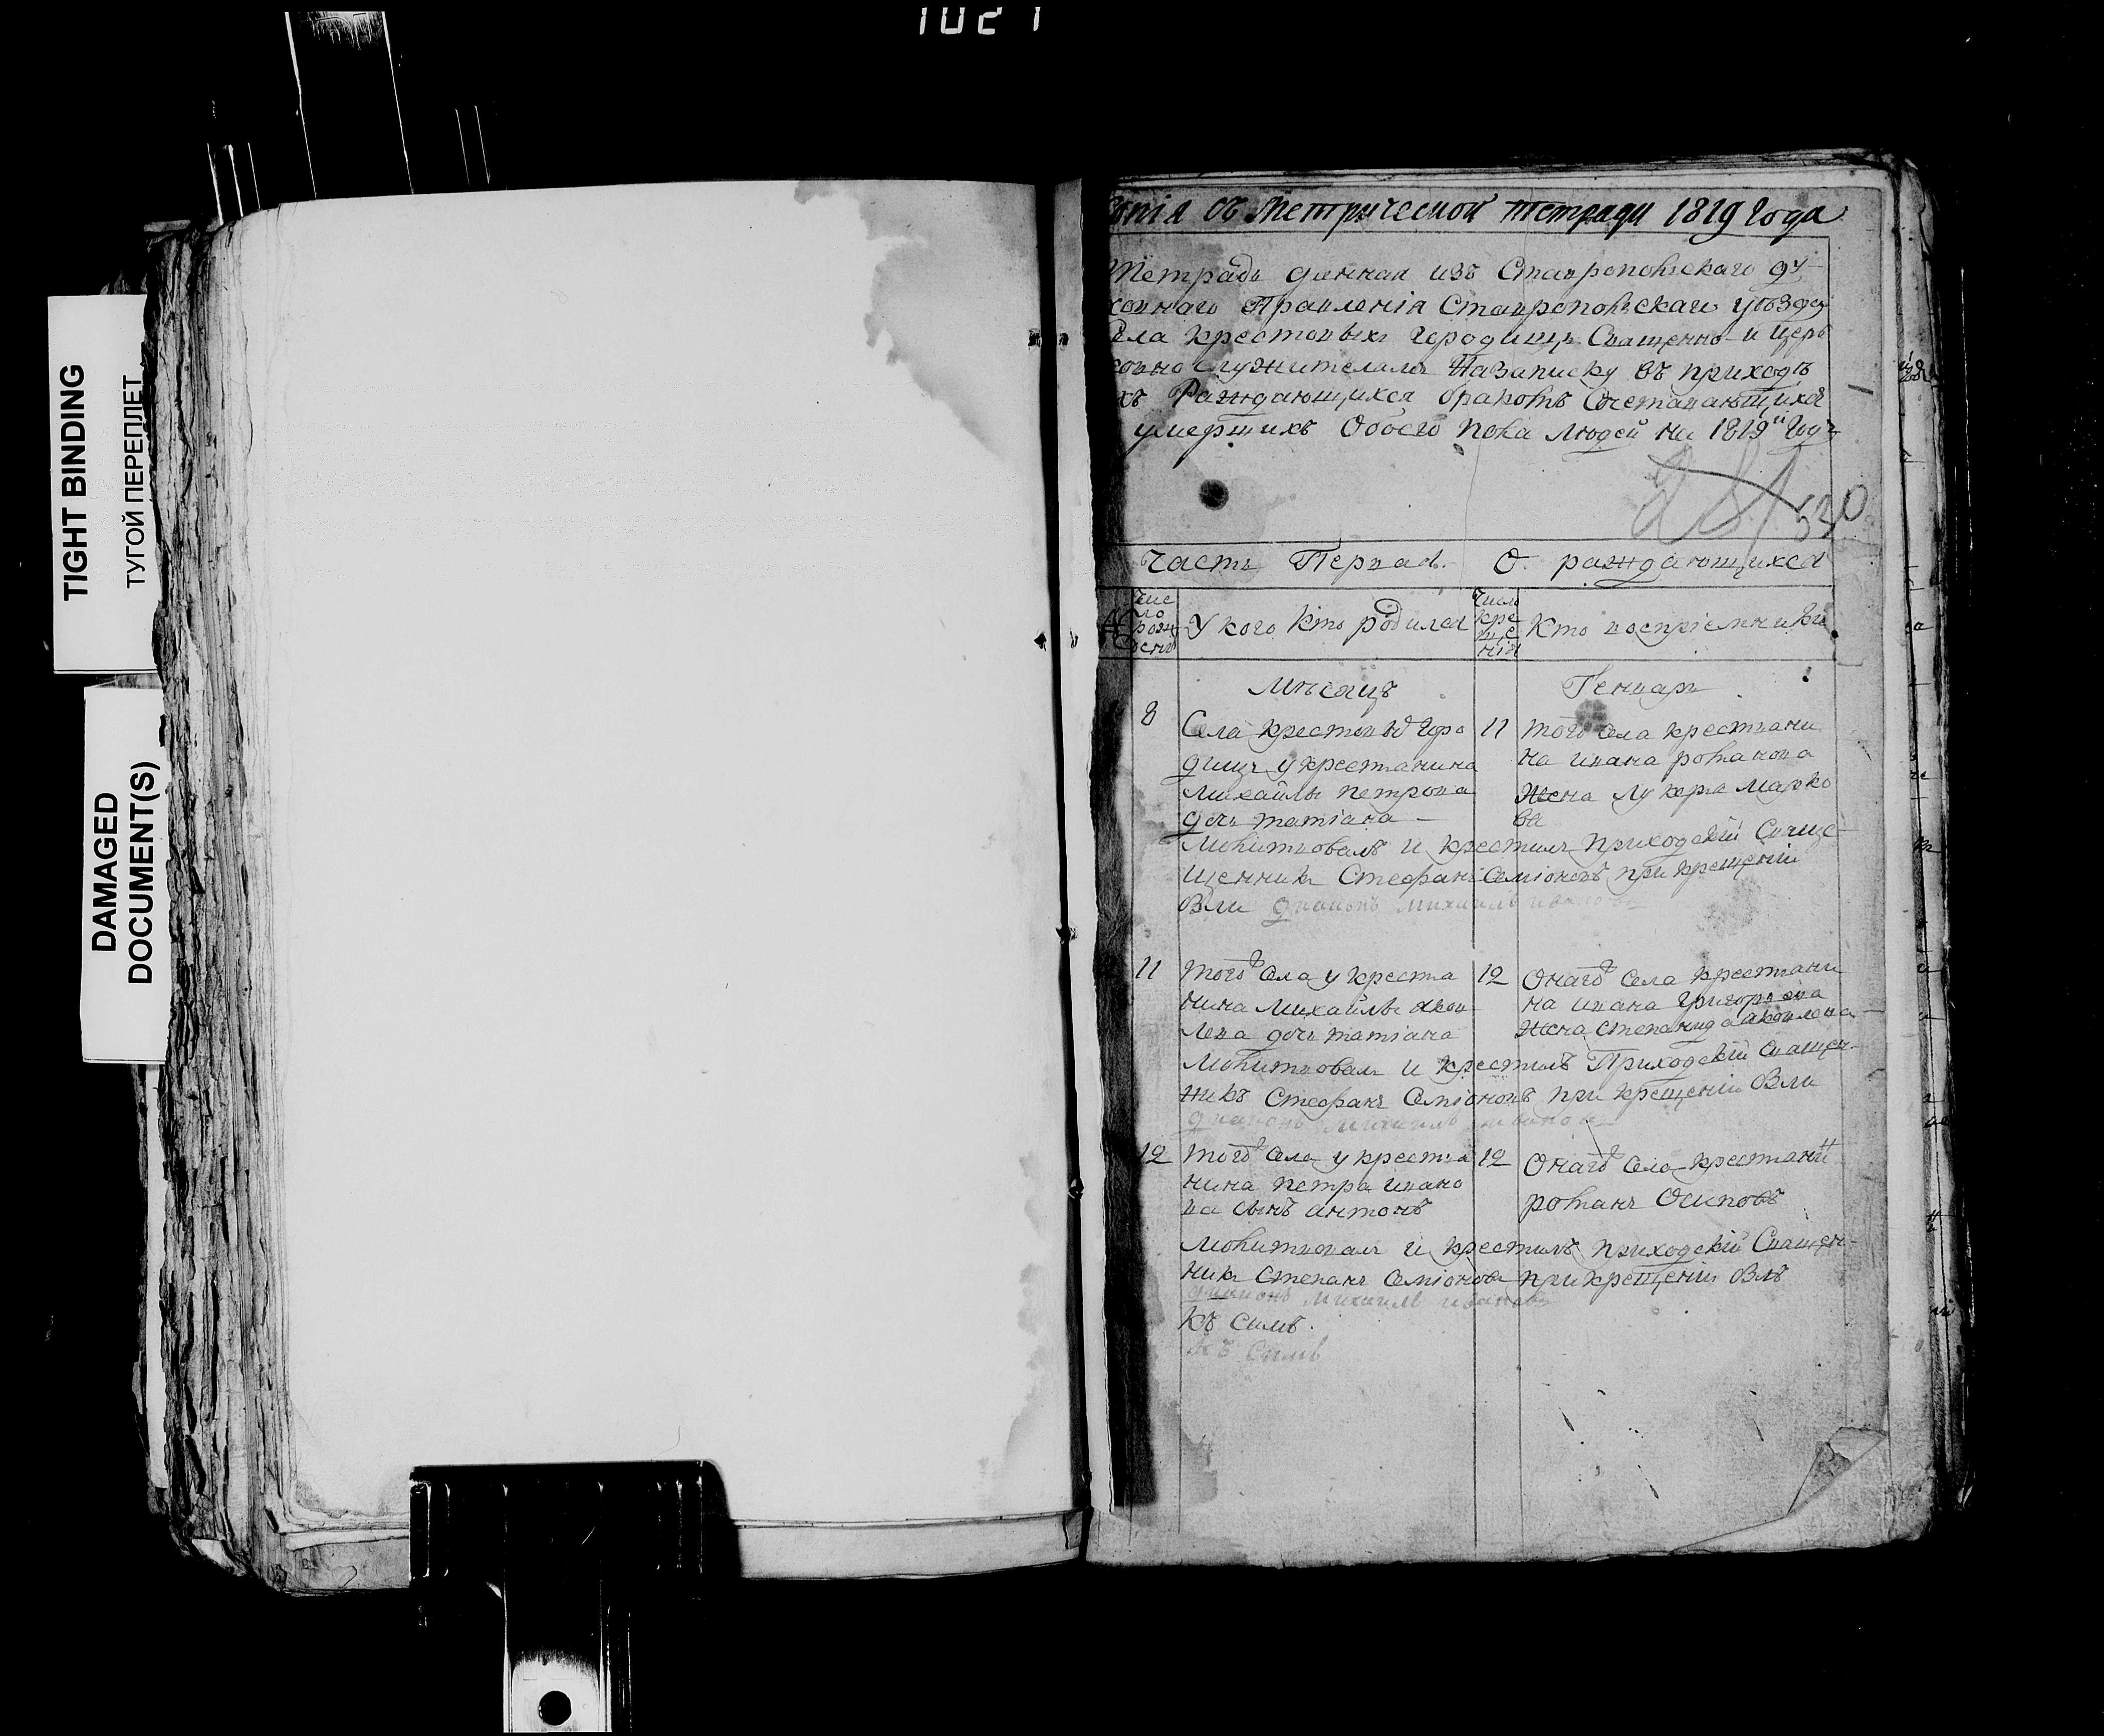 1021
TIGHT BINDING
ТУГОЙ ПЕРЕПЛЕТ
DAMAGED
DOCUMENT(S)
опія съ Метрической тетради 1819 года
Тетрадь данная изъ Ставропольскаго ду-
ховнаго Правленія Ставропольскаго уѣзда
ела крестовыхъ городищь Священно- и церь
ковно служителямъ На записку въ приходѣ
хъ Раждающихся браковъ Сочетавающихся
умершихъ Обоего пола людей на 1819й Годъ
530
Часть Первая. О раждающихся
Чис
ло
рож
У кого кто родился
Числ
кре
ще
нія
Кто воспріемники
Мѣсяцъ Генварь
8
Села крестовыхъ горо
дищь у крестьянина
Михайлы Петрова
дочь татіана —
11
того села крестьяни
на ивана романова
Жена Лукерья Марко
ва
Молитвовалъ и крестилъ приходскій Свяще-
щенникъ Стефанъ Семіоновъ при крещеніи
были діаконъ михаилъ ивановъ
11
того села у крестья
нина Михайлы яков
лева дочь татіана
12
Онаго Села крестьяни
на ивана григорьева
Жена степанида яковлева
Молитвовалъ и крестилъ Приходскій Священ-
никъ Стефанъ Семіоновъ при крещеніи были
діаконъ михаилъ ивановъ
12
того Села у крестья
нина Петра ивано
ва сынъ антонъ
12
Онаго Села крестьянинъ
романъ Осиповъ
Молитвовалъ и крестилъ приходскій Священ-
никъ Степанъ Семіоновъ при крещеніи былъ
діаконъ михаилъ ивановъ
къ симъ.
къ симъ